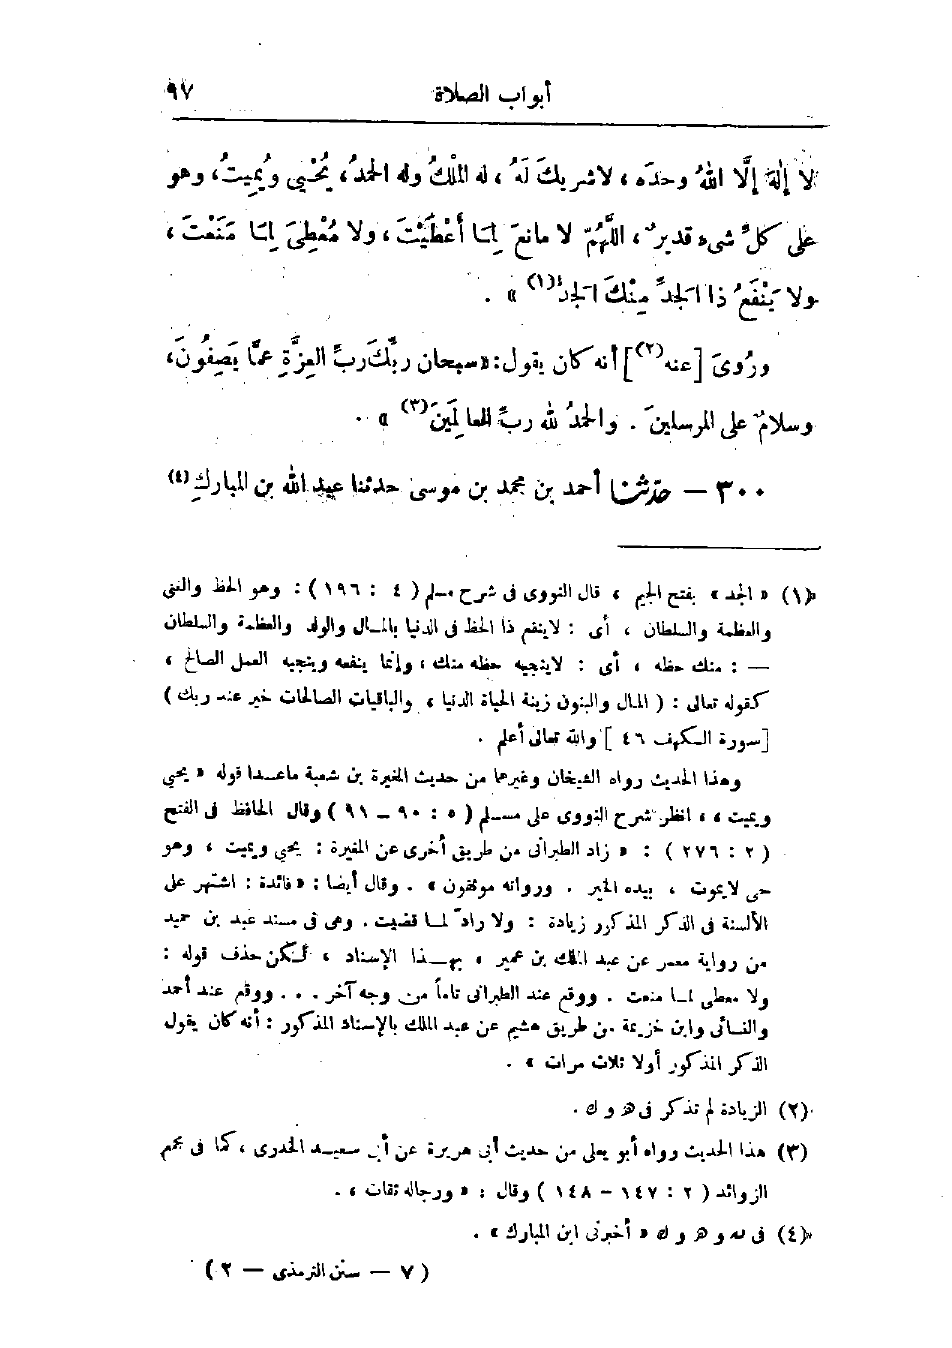 ٩٧ أبواب الصلاة
لا إلهَ إلَّا اللهُ وحدَه ، لاشريكَ لَهُ ، له المُلْكُ وله الحمدُ ، يُحْيِي ويُمِيتُ ، وهو
على كلِّ شىء قديرٌ ، اللَّهُمّ لا مانعَ لِمَا أَعْطَيْتَ ، ولا مُعْطِىَ لِمَا مَنَعْتَ ،
ولا يَنْفَعُ ذا الجَدِّ مِنْكَ الجَدُّ(١) » .
ورُوِىَ [عنه(٢)] أنه كان يقول: «سبحان ربِّكَ ربِّ العِزَّةِ عمَّا يَصِفُونَ ،
وسلامٌ على المرسلينَ . والحمدُ لله ربِّ العالمينَ(٣) » .
٣٠٠ – حدّثنا أحمد بن محمد بن موسى حدثنا عبد الله بن المباركِ(٤)
(١) « الجد » بفتح الجيم ، قال النووى فى شرح مسلم ( ٤ : ١٩٦ ) : وهو الحظ والغنى
والعظمة والسلطان ، أى : لاينفع ذا الحظ فى الدنيا بالمال والولد والعظمة والسلطان
— : منك حظه ، أى : لاينجيه حظه منك ، وإنما ينفعه وينجيه العمل الصالح ،
كقوله تعالى : ( المال والبنون زينة الحياة الدنيا ، والباقيات الصالحات خير عند ربك )
[سورة الكهف ٤٦ ] والله تعالى أعلم .
وهذا الحديث رواه الشيخان وغيرهما من حديث المغيرة بن شعبة ماعدا قوله « يحيى
ويميت » ، انظر شرح النووى على مسلم ( ٥ : ٩٠ – ٩١ ) وقال الحافظ فى الفتح
( ٢ : ٢٧٦ ) : « زاد الطبرانى من طريق أخرى عن المغيرة : يحيى ويميت ، وهو
حى لايموت ، بيده الخير . ورواته موثقون » . وقال أيضا : « فائدة : اشتهر على
الألسنة فى الذكر المذكور زيادة : ولا رادّ لما قضيت . وهى فى مسند عبد بن حميد
من رواية معمر عن عبد الملك بن عمير ، بهذا الإسناد ، لكن حذف قوله :
ولا معطى لما منعت . ووقع عند الطبرانى تاماً من وجه آخر . . . ووقع عند أحمد
والنسائى وابن خزيمة من طريق هشيم عن عبد الملك بالإسناد المذكور : أنه كان يقول
الذكر المذكور أولا ثلاث مرات » .
(٢) الزيادة لم تذكر فى ه و ك .
(٣) هذا الحديث رواه أبو يعلى من حديث أبى هريرة عن أبى سعيد الخدرى ، كما فى مجمع
الزوائد ( ٢ : ١٤٧ – ١٤٨ ) وقال : « ورجاله ثقات » .
(٤) فى و ه و ك « أخبرنى ابن المبارك » .
( ٧ — سنن الترمذى — ٢ )